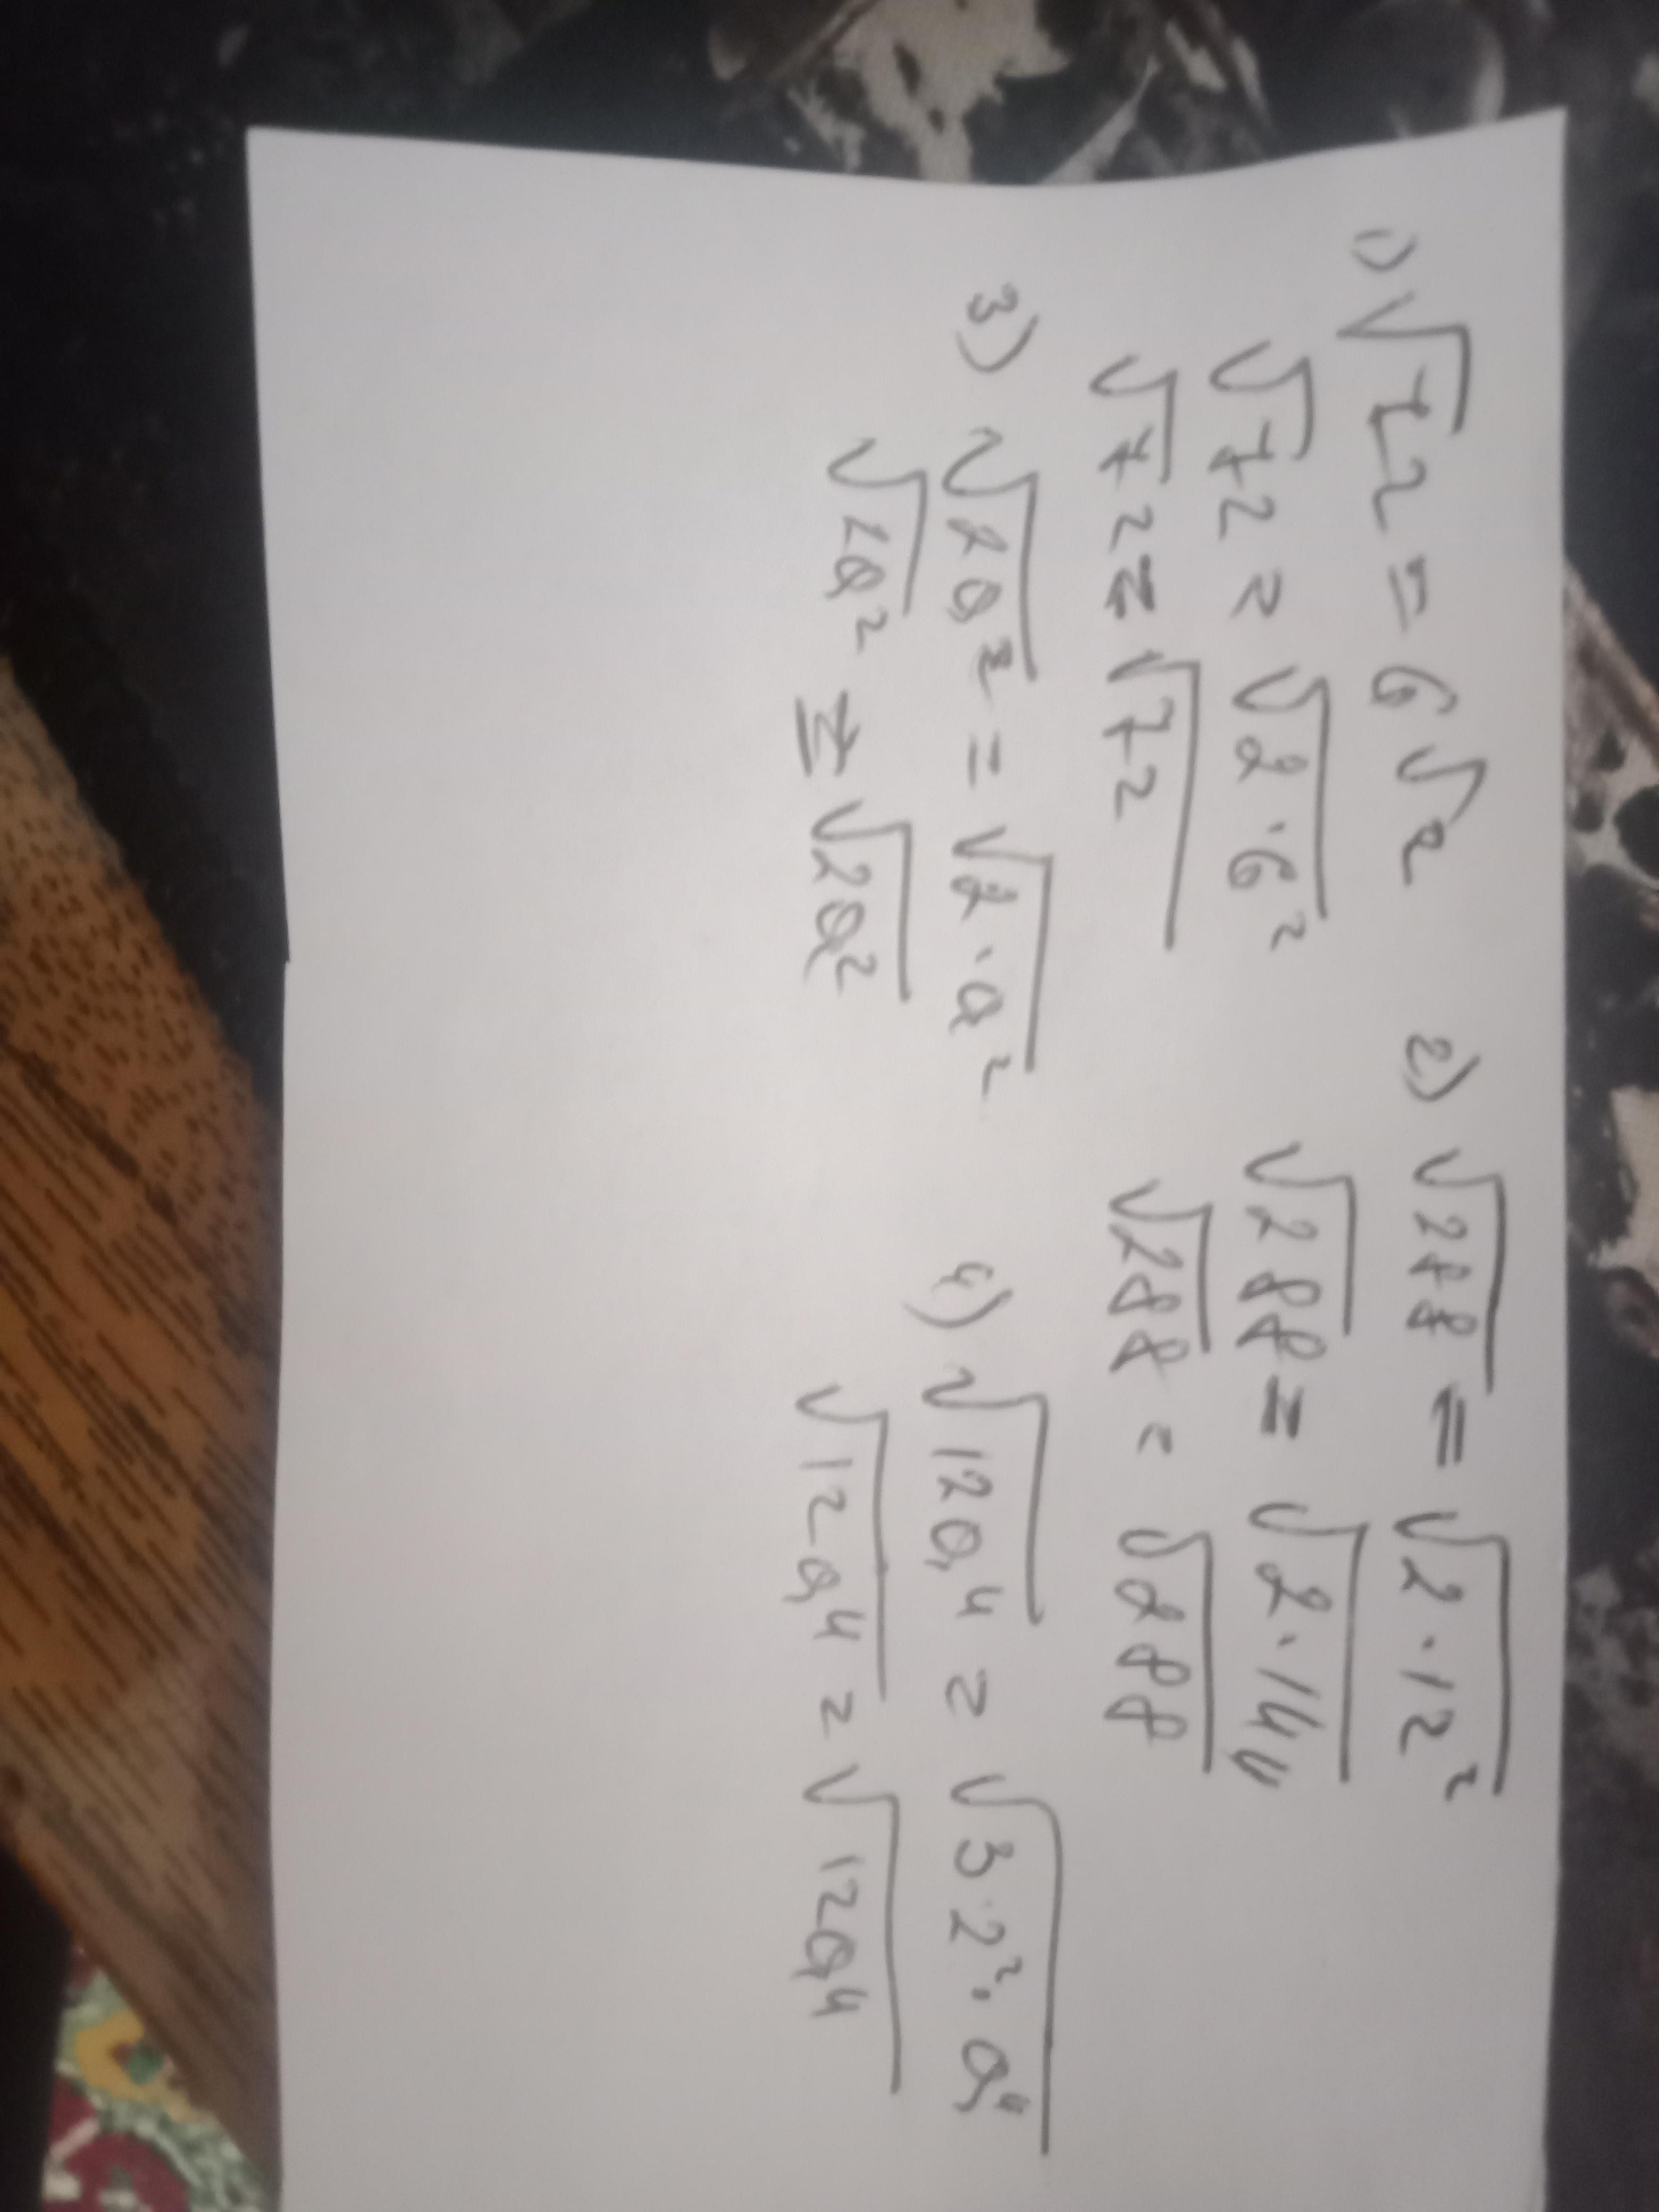 1) √72 = 6√2
√72 = √2·6²
√72 = √72
2) √288 = √2·12²
√288 = √2·144
√288 = √288
3) √2a² = √2·a²
√2a² = √2a²
4) √12a⁴ = √3·2²·a⁴
√12a⁴ = √12a⁴